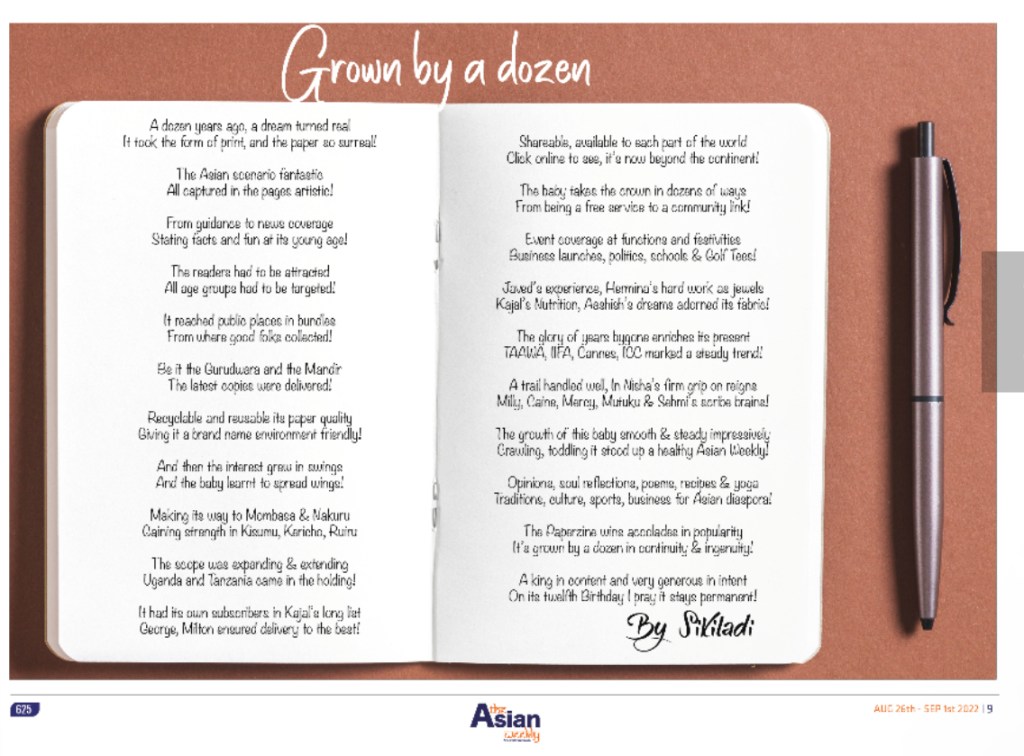 Grown by a dozen
A dozen years ago, a dream turned real
It took the form of print, and the paper so surreal!
The Asian scenario fantastic
All captured in the pages artistic!
From guidance to news coverage
Stating facts and fun at its young age!
The readers had to be attracted
All age groups had to be targeted!
It reached public places in bundles
From where good folks collected!
Be it the Gurudwara and the Mandir
The latest copies were delivered!
Recyclable and reusable its paper quality
Giving it a brand name environment friendly!
And then the interest grew in swings
And the baby learnt to spread wings!
Making its way to Mombasa & Nakuru
Gaining strength in Kisumu, Kericho, Ruiru
The scope was expanding & extending
Uganda and Tanzania came in the holding!
It had its own subscribers in Kajal's long list
George, Milton ensured delivery to the best!
Shareable, available to each part of the world
Click online to see, it's now beyond the continent!
The baby takes the crown in dozens of ways
From being a free service to a community link!
Event coverage at functions and festivities
Business launches, politics, schools & Golf Tees!
Javed's experience, Hermina's hard work as jewels
Kajal's Nutrition, Aashish's dreams adorned its fabric!
The glory of years bygone enriches its present
TAAWA, IIFA, Cannes, ICC marked a steady trend!
A trail handled well, In Nisha's firm grip on reigns
Milly, Caine, Mercy, Mutuku & Sehmi's scribe brains!
The growth of this baby smooth & steady impressively
Crawling, toddling it stood up a healthy Asian Weekly!
Opinions, soul reflections, poems, recipes & yoga
Traditions, culture, sports, business for Asian diaspora!
The Paperzine wins accolades in popularity
It's grown by a dozen in continuity & ingenuity!
A king in content and very generous in intent
On its twelfth Birthday I pray it stays permanent!
By SiKiladi
625
the Asian weekly
AUG 26th - SEP 1st 2022 | 9